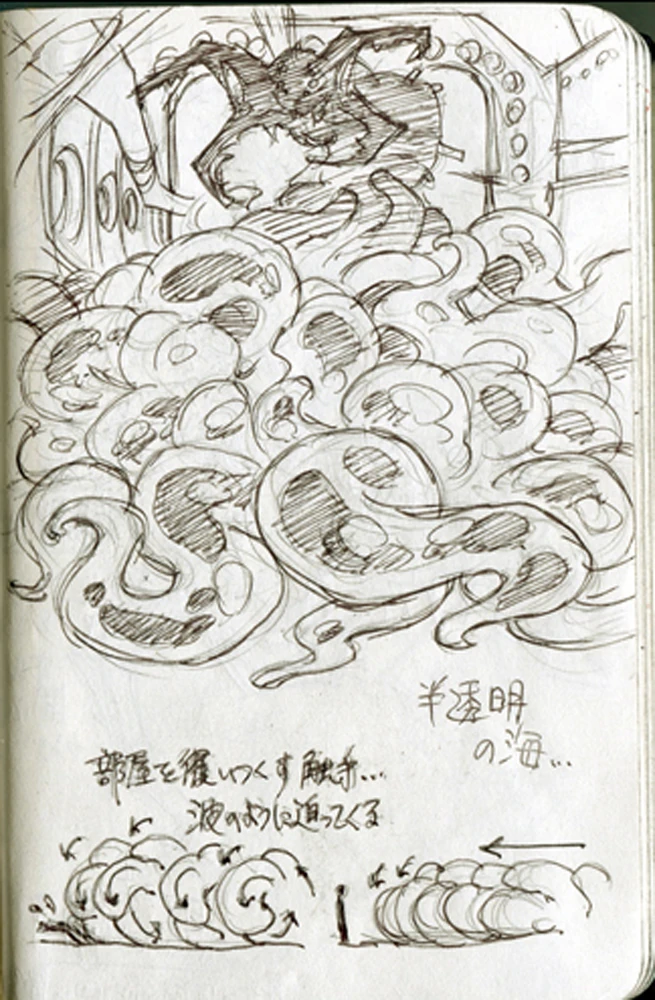 半透明
の海...
部屋を覆いつくす触手...
波のように迫ってくる